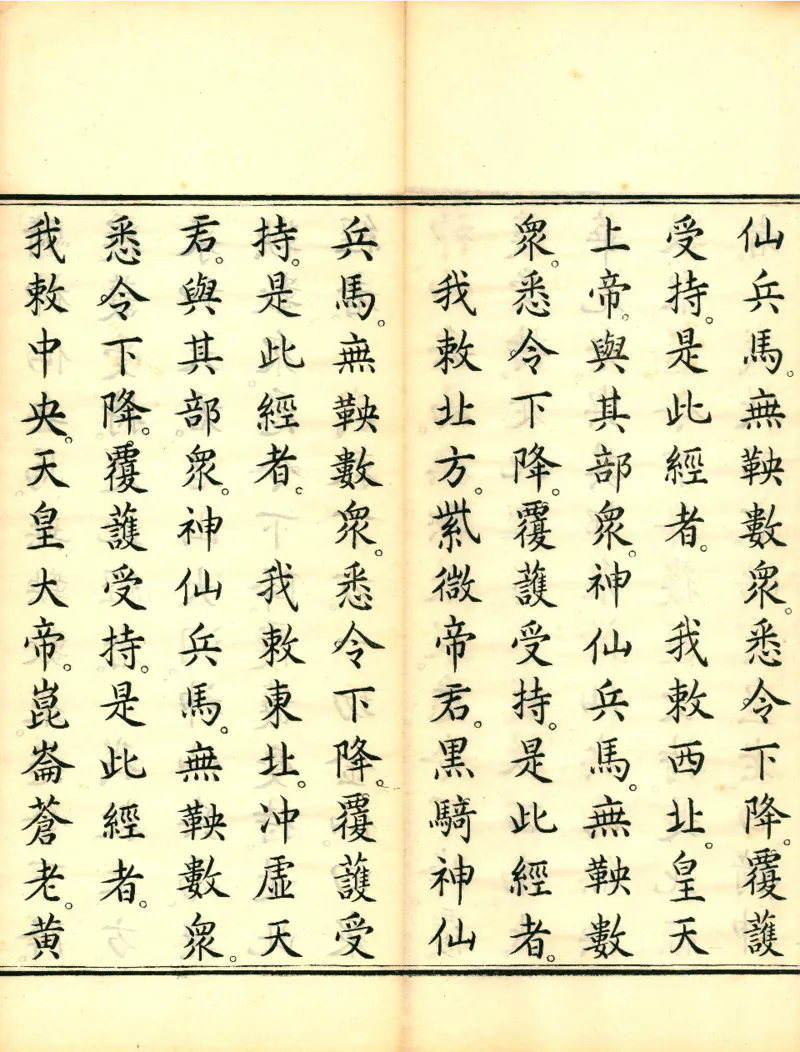 仙兵馬。無鞅數衆。悉令下降。覆護
受持。是此經者。　我敕西北。皇天
上帝。與其部衆。神仙兵馬。無鞅數
衆。悉令下降。覆護受持。是此經者。
　我敕北方。紫微帝君。黑騎神仙
兵馬。無鞅數衆。悉令下降。覆護受
持。是此經者。　我敕東北。冲虛天
君。與其部衆。神仙兵馬。無鞅數衆。
悉令下降。覆護受持。是此經者。
我敕中央。天皇大帝。崑崙蒼老。黄